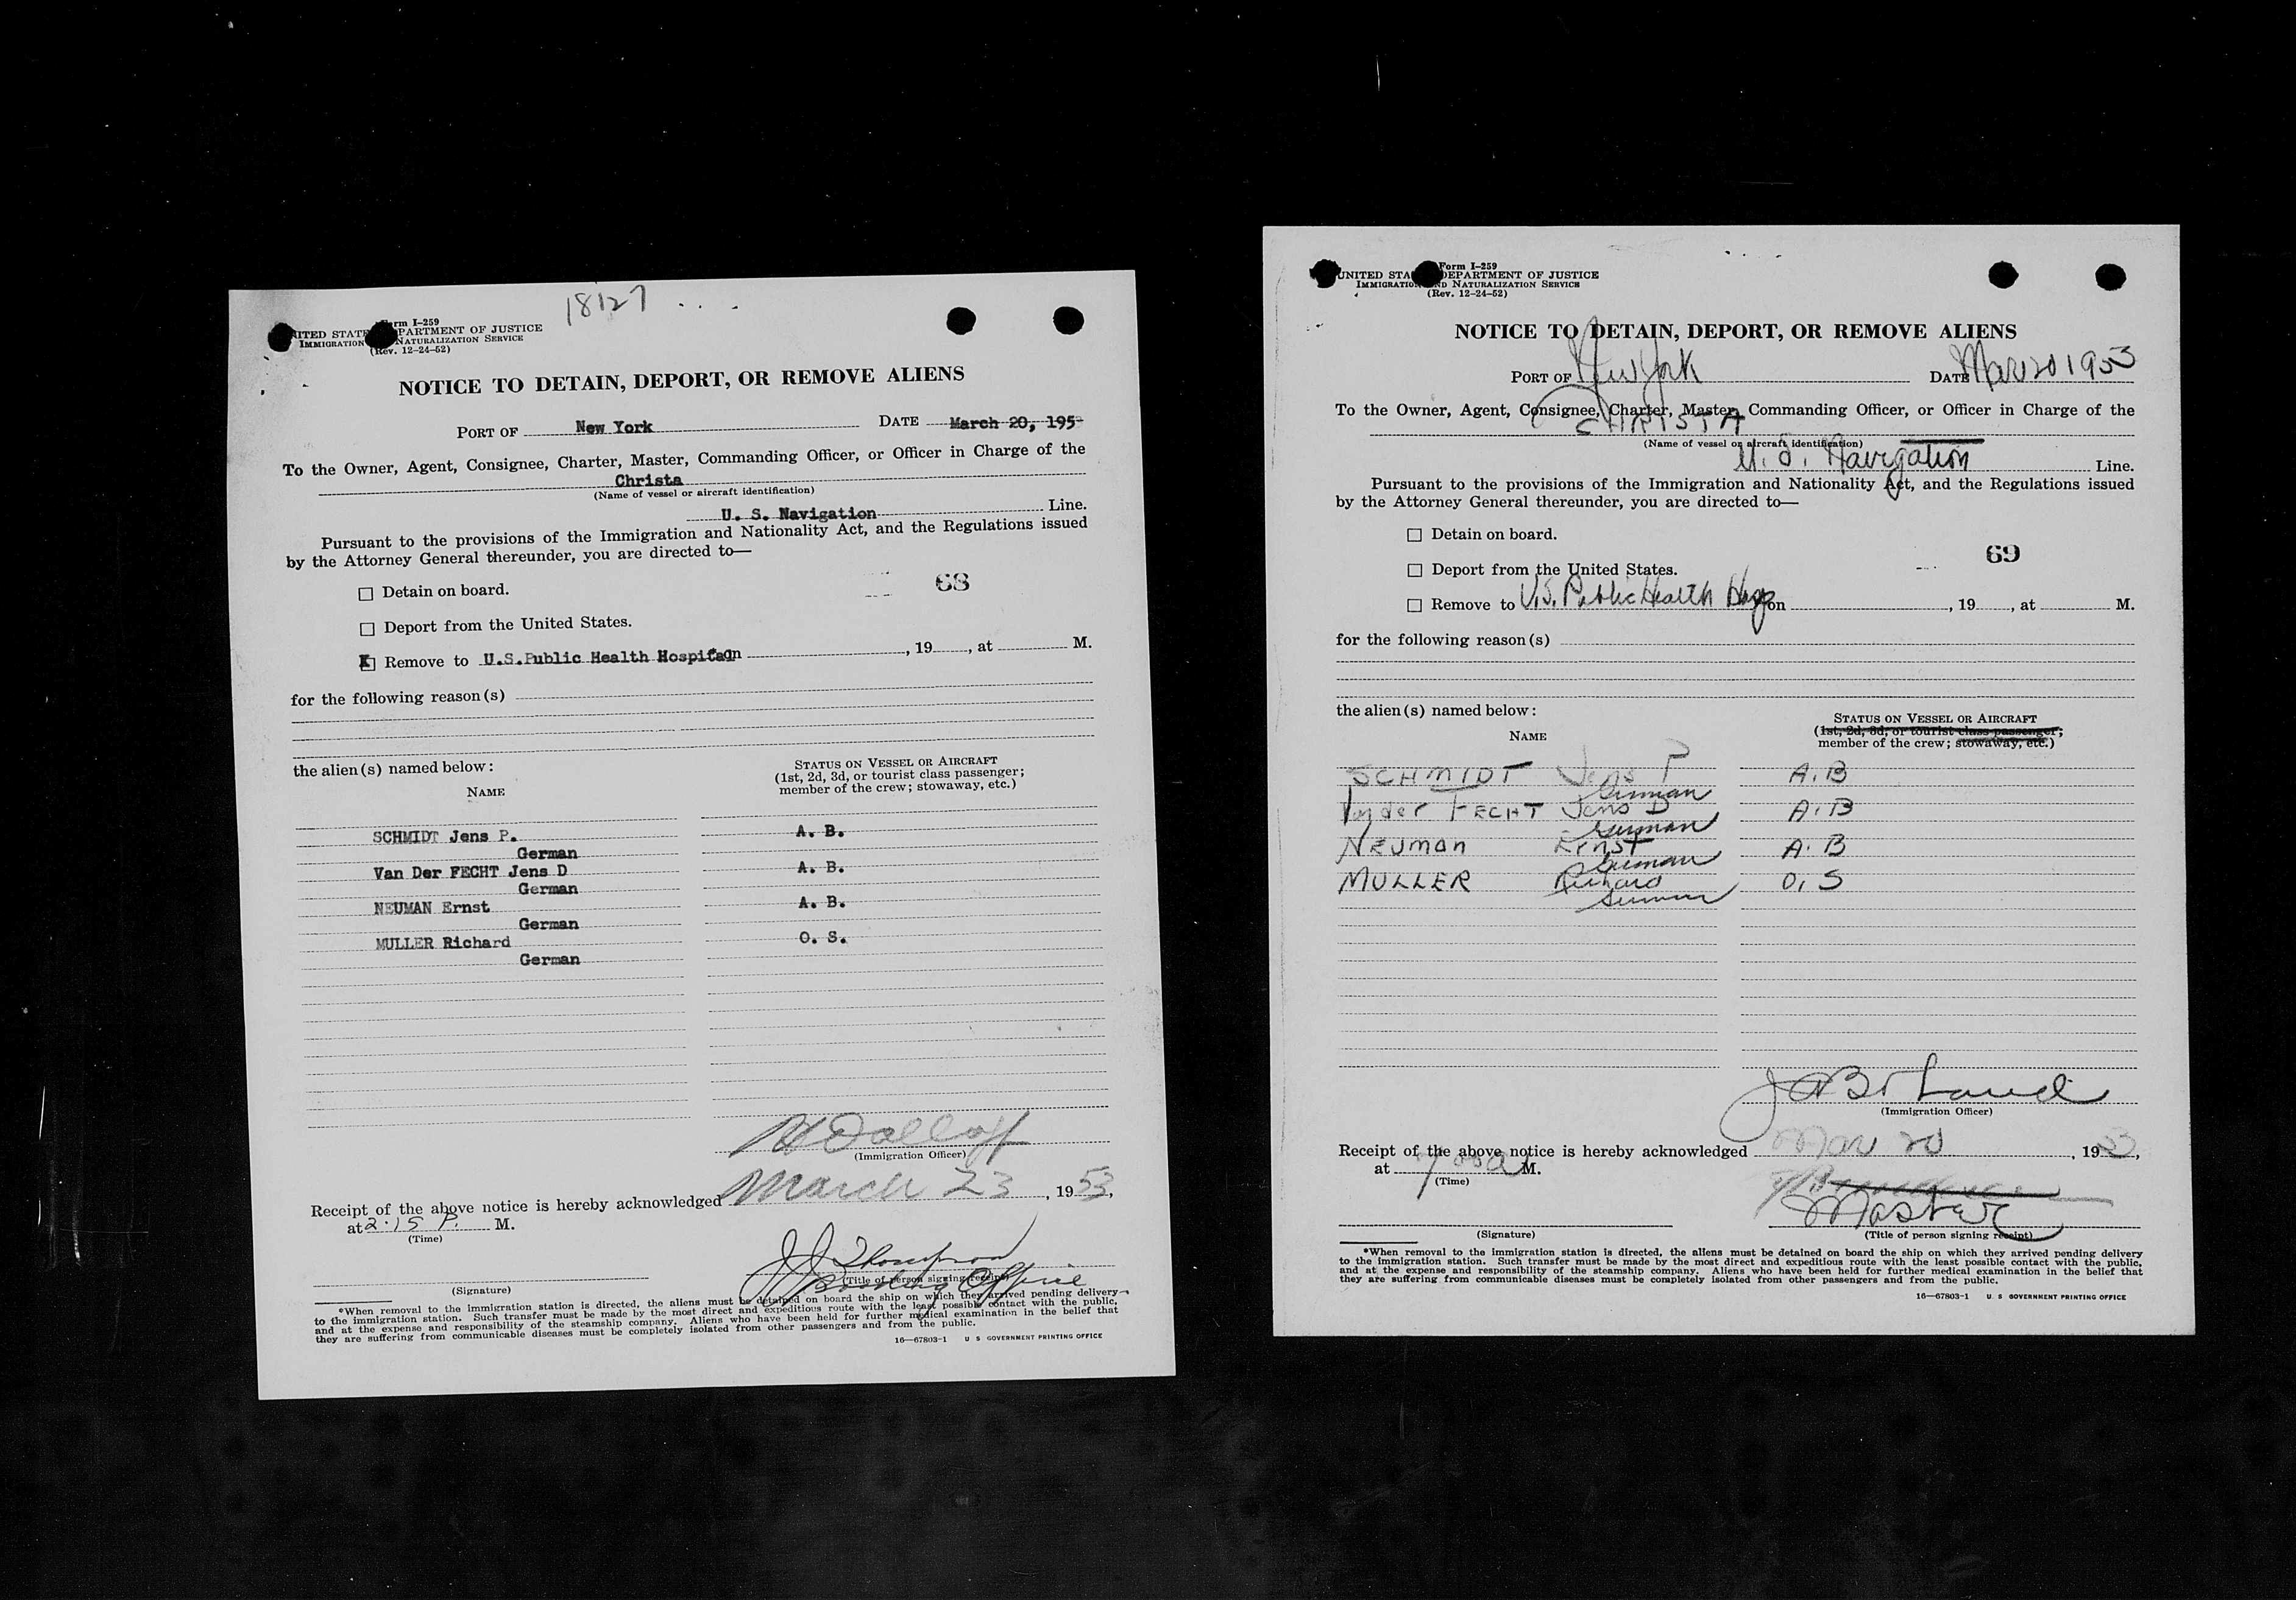 18127
Form I-259
UNITED STATES DEPARTMENT OF JUSTICE
IMMIGRATION NATURALIZATION SERVICE
(Rev. 12-24-52)
NOTICE TO DETAIN, DEPORT, OR REMOVE ALIENS
PORT OF New York DATE March 20, 195
To the Owner, Agent, Consignee, Charter, Master, Commanding Officer, or Officer in Charge of the
Christa
(Name of vessel or aircraft identification)
U. S. Navigation Line.
Pursuant to the provisions of the Immigration and Nationality Act, and the Regulations issued
by the Attorney General thereunder, you are directed to—
☐ Detain on board.
68
☐ Deport from the United States.
☒ Remove to U.S.Public Health Hospital on , 19 , at M.
for the following reason(s)
the alien(s) named below:
NAME
STATUS ON VESSEL OR AIRCRAFT
(1st, 2d, 3d, or tourist class passenger;
member of the crew; stowaway, etc.)
SCHMIDT Jens P. A. B.
German
Van Der FECHT Jens D A. B.
German
NEUMAN Ernst A. B.
German
MULLER Richard O. S.
German
(Immigration Officer)
Receipt of the above notice is hereby acknowledged March 23, 1953,
at 2:15 P. M.
(Time)
J J Thompson
(Signature)
(Title of person signing receipt)
Boarding Office
*When removal to the immigration station is directed, the aliens must be detained on board the ship on which they arrived pending delivery
to the immigration station. Such transfer must be made by the most direct and expeditious route with the least possible contact with the public,
and at the expense and responsibility of the steamship company. Aliens who have been held for further medical examination in the belief that
they are suffering from communicable diseases must be completely isolated from other passengers and from the public.
16—67803-1 U S GOVERNMENT PRINTING OFFICE
Form I-259
UNITED STA DEPARTMENT OF JUSTICE
IMMIGRATION AND NATURALIZATION SERVICE
(Rev. 12-24-52)
NOTICE TO DETAIN, DEPORT, OR REMOVE ALIENS
PORT OF New York DATE Mar 20 1953
To the Owner, Agent, Consignee, Charter, Master, Commanding Officer, or Officer in Charge of the
CHRISTA
(Name of vessel or aircraft identification)
U. S. Navigation Line.
Pursuant to the provisions of the Immigration and Nationality Act, and the Regulations issued
by the Attorney General thereunder, you are directed to—
☐ Detain on board.
69
☐ Deport from the United States.
☐ Remove to U.S. Public Health Hosp on , 19 , at M.
for the following reason(s)
the alien(s) named below:
NAME
STATUS ON VESSEL OR AIRCRAFT
(1st, 2d, 3d, or tourist class passenger;
member of the crew; stowaway, etc.)
SCHMIDT Jens P A.B
German
der FECHT Jens D A.B
German
NEUMAN Ernst A.B
German
MULLER Richard O.S
German
(Immigration Officer)
Receipt of the above notice is hereby acknowledged Mar 20, 1953,
at M.
(Time)
Master
(Signature)
(Title of person signing receipt)
*When removal to the immigration station is directed, the aliens must be detained on board the ship on which they arrived pending delivery
to the immigration station. Such transfer must be made by the most direct and expeditious route with the least possible contact with the public,
and at the expense and responsibility of the steamship company. Aliens who have been held for further medical examination in the belief that
they are suffering from communicable diseases must be completely isolated from other passengers and from the public.
16—67803-1 U. S GOVERNMENT PRINTING OFFICE